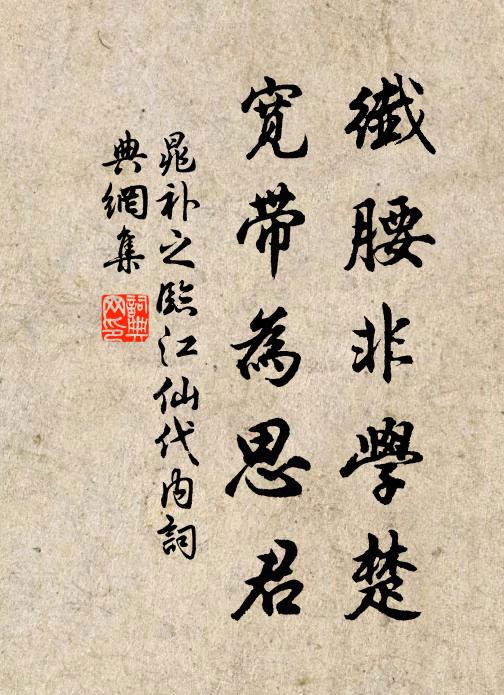 纖腰非學楚
寬帶為思君
晁补之臨江仙代内詞
典網集
詞典網印